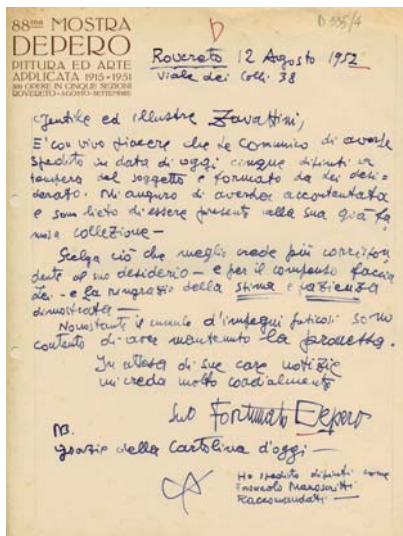 88ma MOSTRA
DEPERO
PITTURA ED ARTE
APPLICATA 1915-1951
300 OPERE IN CINQUE SEZIONI
ROVERETO - AGOSTO-SETTEMBRE
D
D 335/4
Rovereto 12 Agosto 1952
Viale dei Colli 38
Gentile ed illustre Zavattini,
E' con vivo piacere che Le comunico di averle
spedito in data di oggi cinque dipinti a
tempera del soggetto e formato da Lei desi-
derato. Mi auguro di averla accontentata
e sono lieto di essere presente nella sua già fa
mosa collezione —
Scelga ciò che meglio crede più corrispon
dente al suo desiderio — e per il compenso faccia
Lei — e la ringrazio della stima e pazienza
dimostrata —
Nonostante il cumulo d'impegni faticosi sono
contento di aver mantenuto la promessa.
In attesa di sue care notizie
mi creda molto cordialmente
Suo Fortunato Depero
NB.
grazie della Cartolina d'oggi —
Ho spedito dipinti come
Fascicolo Manoscritti
Raccomandati —